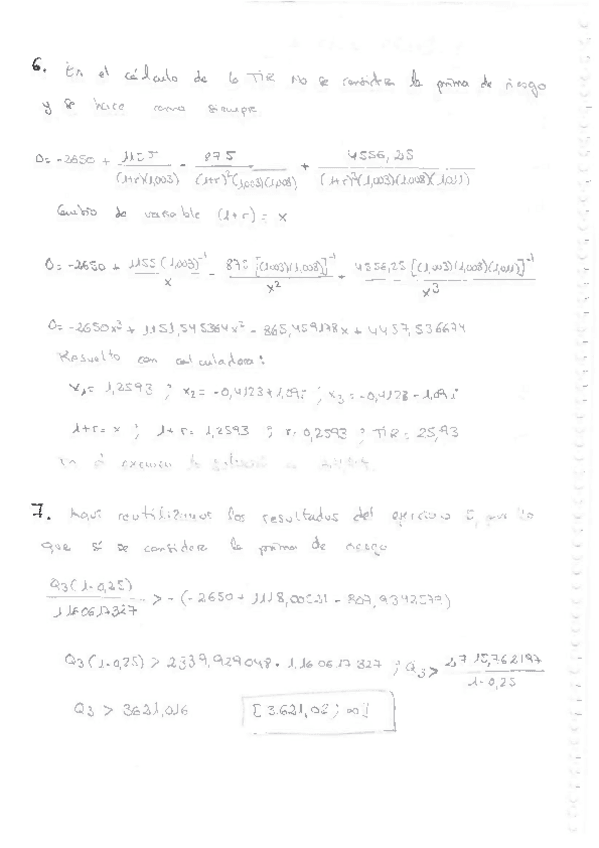 6. En el cálculo de la TIR no se considera la prima de riesgo
y se hace como siempre
0 = -2650 + 1155/((1+r)(1,003)) - 875/((1+r)²(1,003)(1,008)) + 4556,25/((1+r)³(1,003)(1,008)(1,011))
Cambio de variable (1+r) = x
0 = -2650 + 1155(1,003)⁻¹/x - 875[(1,003)(1,008)]⁻¹/x² + 4556,25[(1,003)(1,008)(1,011)]⁻¹/x³
0 = -2650x³ + 1151,545364x² - 865,459178x + 4457,536674
Resuelto con calculadora:
x₁ = 1,2593 ; x₂ = -0,4123+1,09i ; x₃ = -0,4123-1,09i
1+r = x ; 1+r = 1,2593 ; r = 0,2593 ; TIR = 25,93
7. Aquí reutilizamos los resultados del ejercicio 5, por lo
que sí se considera la prima de riesgo
Q3(1-0,25)/1,160617327 > -(-2650 + 1118,00 - 807,9392579)
Q3(1-0,25) > 2339,929048 · 1,160617327 ; Q3 > 2715,762197/1-0,25
Q3 > 3621,016 [3.621,02 ; ∞]